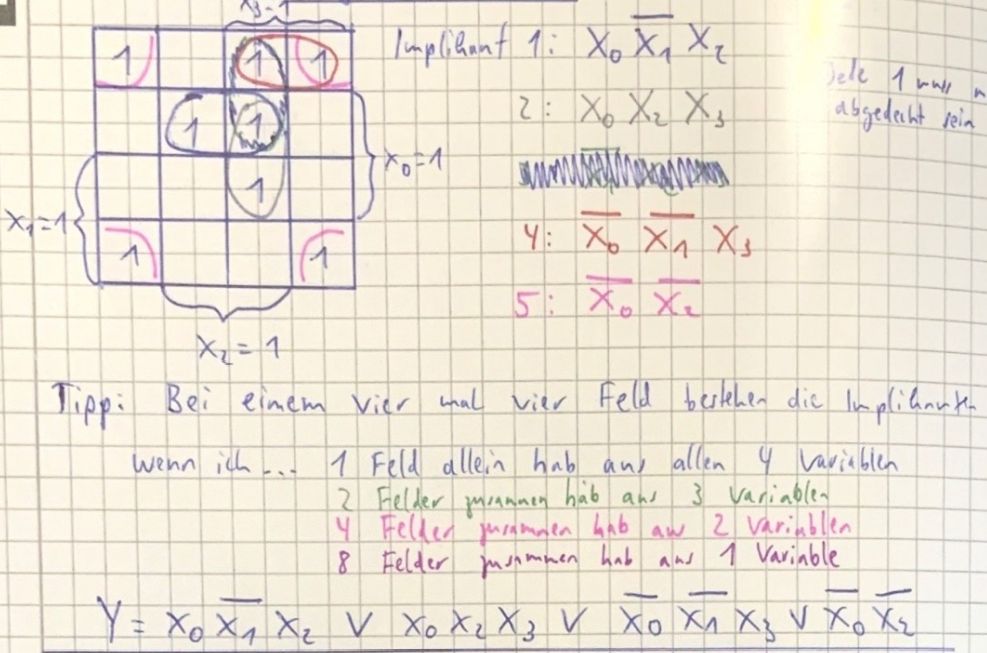 X₃=1
1 1 1
1 1
1
1 1
X₀=1
X₁=1
X₂ = 1
Implikant 1: X₀ X̅₁ X₂
2: X₀ X₂ X₃
4: X̅₀ X̅₁ X₃
5: X̅₀ X̅₂
Jede 1 muss
abgedeckt sein
Tipp: Bei einem vier mal vier Feld bestehen die Implikanten
wenn ich... 1 Feld allein hab aus allen 4 Variablen
2 Felder zusammen hab aus 3 Variablen
4 Felder zusammen hab aus 2 Variablen
8 Felder zusammen hab aus 1 Variable
Y = X₀ X̅₁ X₂ ∨ X₀ X₂ X₃ ∨ X̅₀ X̅₁ X₃ ∨ X̅₀ X̅₂